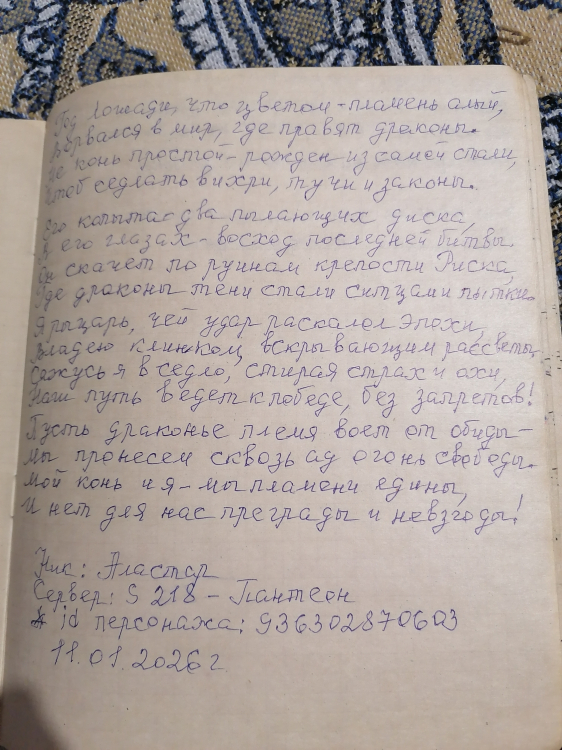 Год Лошади, что цветом - пламень алый,
Ворвался в мир, где правят драконы.
Не конь простой - рожден из самой стали,
Чтоб седлать вихри, тучи и законы.
Его копыта - два пылающих диска,
В его глазах - восход последней битвы.
Он скачет по руинам крепости Риска,
Где драконы тени стали пытки.
Я рыцарь, чей удар расколол эпохи,
Владею клинком, вскрывающим рассветы
Сажусь я в седло, стирая страх и охи,
Наш путь ведет к победе, без запретов!
Пусть драконье племя воет от обиды -
Мы пронесем сквозь ад огонь свободы.
Мой конь и я - мы пламени едины,
И нет для нас преграды и невзгоды!
Ник: Аластар
Сервер: S 218 - Пантеон
id персонажа: 936302870603
11.01.2026 г